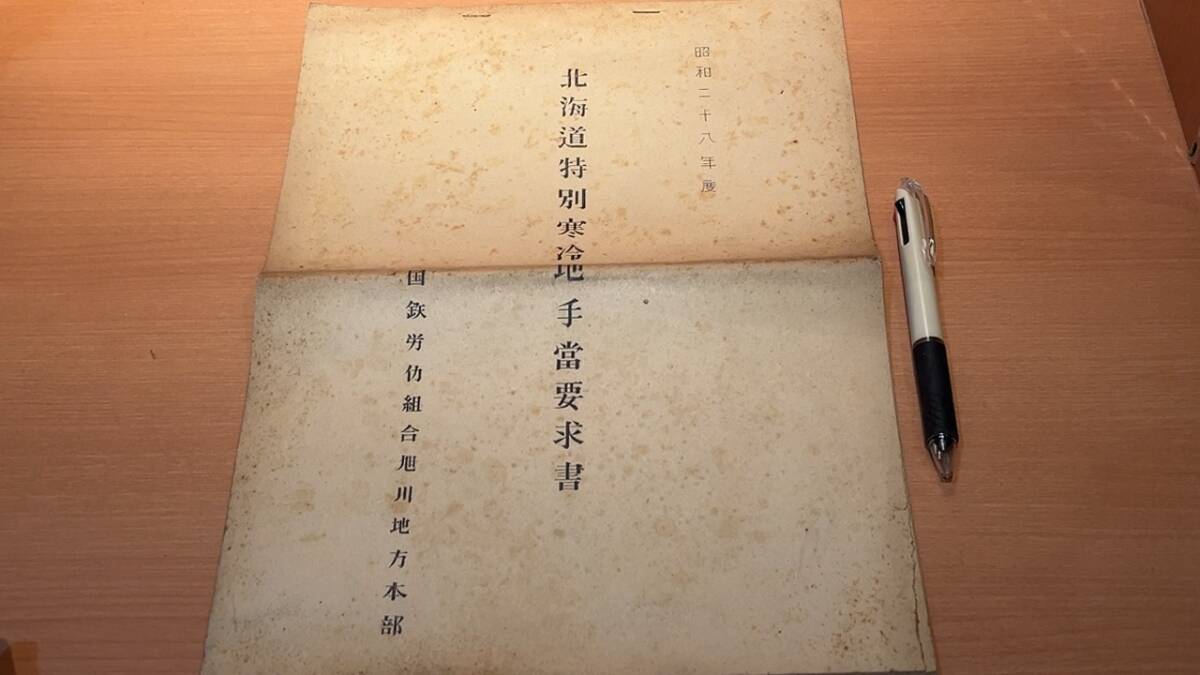 昭和二十八年度
北海道特別寒冷地手當要求書
国鉄労仂組合旭川地方本部